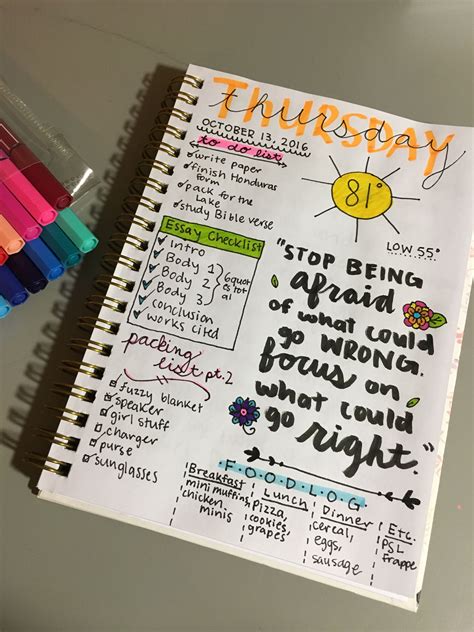 THURSDAY
thursday
OCTOBER 13, 2016
to do list
write paper
finish Honduras
form
pack for the
Lake
study Bible verse
81°
LOW 55°
Essay Checklist
Intro
Body 1
Body 2
Body 3
conclusion
works cited
6 quotes total
packing
list pt. 2
fuzzy blanket
speaker
girl stuff
charger
purse
sunglasses
"STOP BEING
afraid
of what could
go WRONG.
focus on
what could
go right."
FOODLOG
Breakfast
mini muffins,
chicken
minis
Lunch
pizza,
cookies,
grapes
Dinner
cereal,
eggs,
sausage
Etc.
PSL
frappe